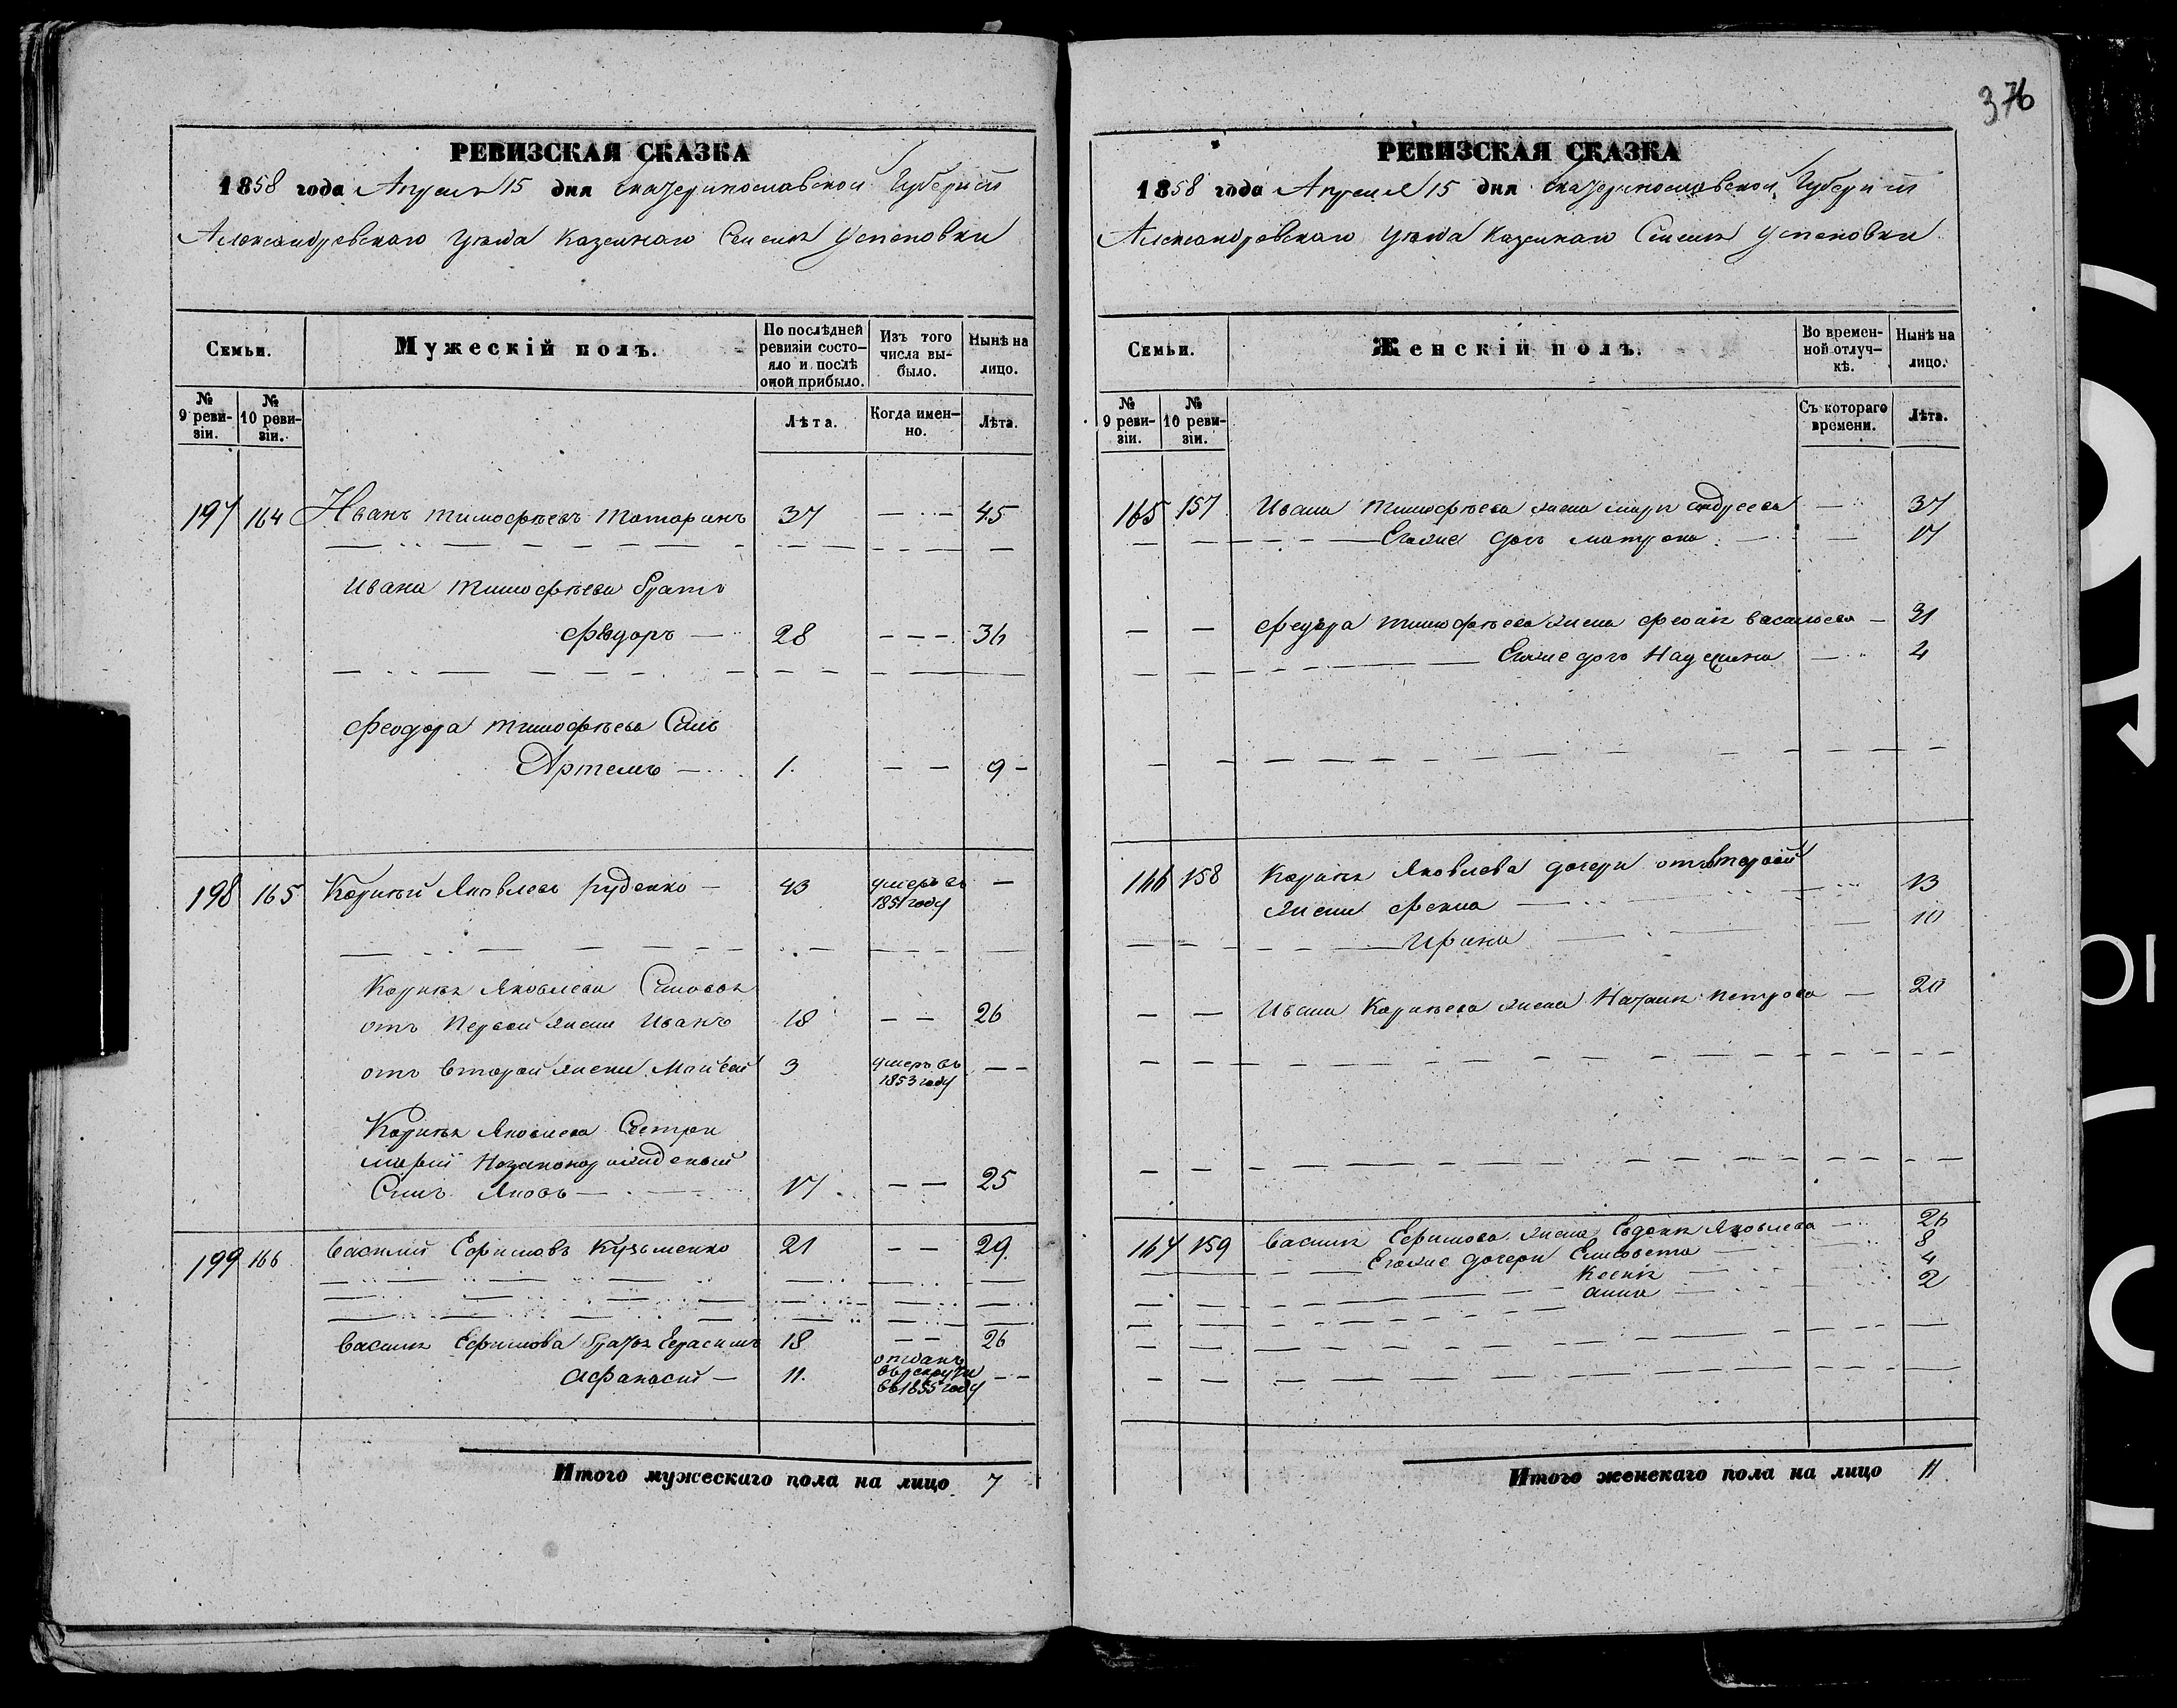 376
РЕВИЗСКАЯ СКАЗКА
1858 года Апреля 15 дня Екатеринославской Губернии
Александровскаго уѣзда Казеннаго Селенія Успеновки
Семьи.
Мужескій полъ.
По послѣдней ревизіи состояло и послѣ оной прибыло.
Изъ того числа выбыло.
Нынѣ на лицо.
№ 9 ревизіи.
№ 10 ревизіи.
Лѣта.
Когда именно.
Лѣта.
197 164 Иванъ Тимофѣевъ Тотаринъ 37 — — 45
Ивана Тимофѣева братъ
Федоръ — 28 — — — 36
Феодора Тимофѣева Сынъ
Артемъ — 1. — — 9 —
198 165 Корнѣй Яковлевъ Руденко — 43 умеръ въ 1851 году —
Корнѣя Яковлева Сыновья
отъ Первой жены Иванъ 18 — — 26
отъ второй жены Моисей 3 умеръ въ 1853 году — —
Корнѣя Яковлева Сестры
Марии Незаконнорожденый
Сынъ Яковъ — 17 — — 25
199 166 Василий Ефимовъ Кузьменко 21 — — 29
Василия Ефимова братья Герасимъ 18 — — 26
Афанасий — 11. отданъ в рекруты в 1855 году — —
Итого мужескаго пола на лицо 7
РЕВИЗСКАЯ СКАЗКА
1858 года Апреля 15 дня Екатеринославской Губернии
Александровскаго уѣзда Казеннаго Селенія Успеновки
Семьи.
Женскій полъ.
Во временной отлучкѣ.
Нынѣ на лицо.
№ 9 ревизіи.
№ 10 ревизіи.
Съ котораго времени.
Лѣта.
165 157 Ивана Тимофѣева жена Марья Андреева — 37
Егоже дочь Матрона — 17
— — Федора Тимофѣева жена Феоия Васильева — 31
Егоже дочь Надежда — 4
166 158 Корнѣя Яковлева дочери отъ второй
жены Фекла — 13
Ирина — 10
— — Ивана Корнѣева жена Наталия Петрова — 20
167 159 Василия Ефимова жена Евдокия Яковлева — 26
Егоже дочери Елисовета — 8
Ксения — 4
Анна — 2
Итого женскаго пола на лицо 11.